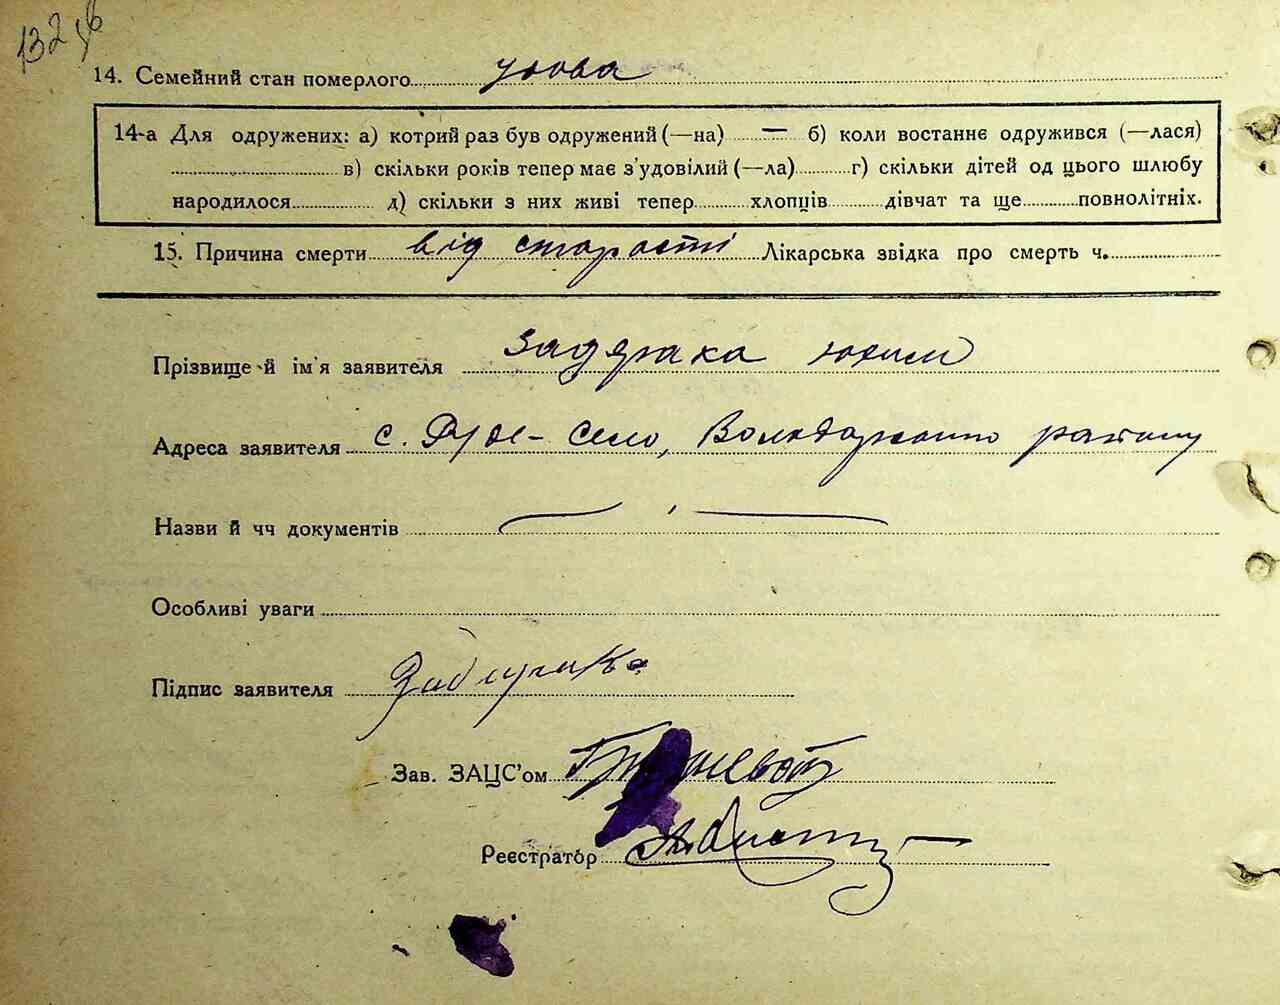 132
14. Семейний стан померлого удова
14-а Для одружених: а) котрий раз був одружений (—на) — б) коли востаннє одружився (—лася)
в) скільки років тепер має з'удовілий (—ла) г) скільки дітей од цього шлюбу
народилося д) скільки з них живі тепер хлопців дівчат та ще повнолітніх.
15. Причина смерти від старості Лікарська звідка про смерть ч.
Прізвище й ім'я заявителя Юхим
Адреса заявителя с. Рубе-Село, району
Назви й чч документів —
Особливі уваги
Підпис заявителя
Зав. ЗАЦС'ом
Реєстратор